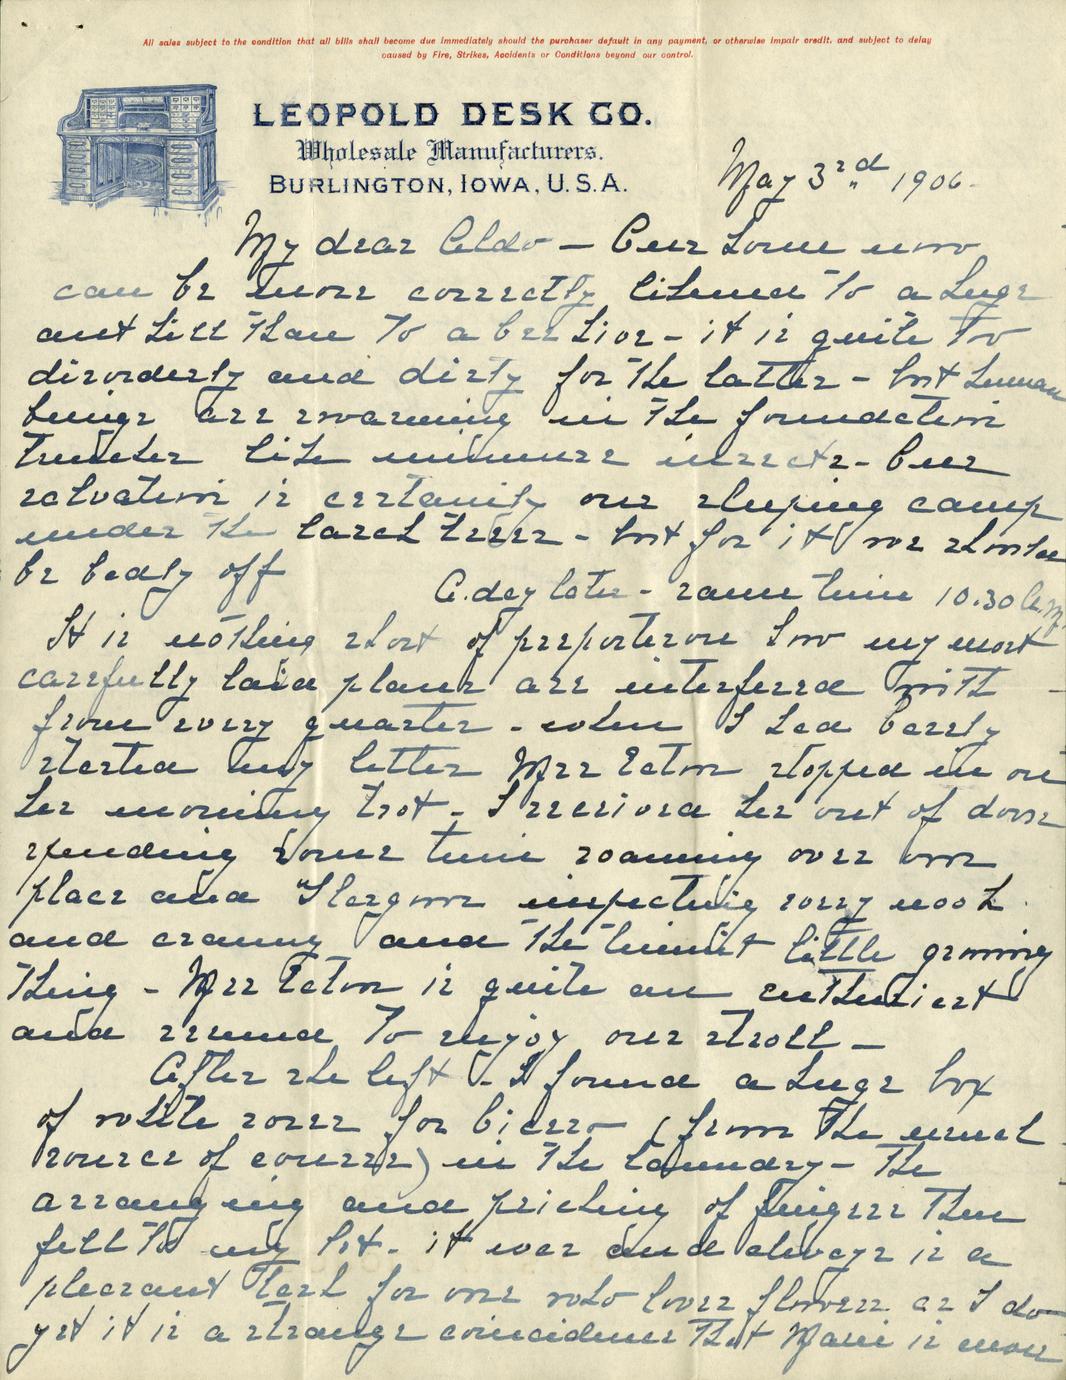 All sales subject to the condition that all bills shall become due immediately should the purchaser default in any payment, or otherwise impair credit, and subject to delay
caused by Fire, Strikes, Accidents or Conditions beyond our control.
LEOPOLD DESK CO.
Wholesale Manufacturers.
BURLINGTON, IOWA, U.S.A.
May 3rd 1906.
My dear Aldo — Our home now
can be more correctly likened to a huge
ant hill than to a bee hive - it is quite too
disorderly and dirty for the latter - but human
beings are swarming in the foundation
trenches like immense insects - Our
salvation is certainly our sleeping camp
under the larch trees - but for it we should
be badly off
A day later - same time 10.30 A.M.
It is nothing short of preposterous how my most
carefully laid plans are interfered with -
from every quarter - when I had barely
started my letter Mrs Eaton stopped in on
her morning trot - I received her out of doors
spending some time roaming over our
place and inspecting every nook
and cranny and the tiniest little growing
thing - Mrs Eaton is quite an enthusiast
and seemed to enjoy our stroll —
After she left - I found a huge box
of white roses for (from the usual
source of course) in the laundry - The
arranging and pricking of fingers then
fell to my lot - it was and always is a
pleasant task for one who loves flowers as I do
yet it is a strange coincidence that Marie is more